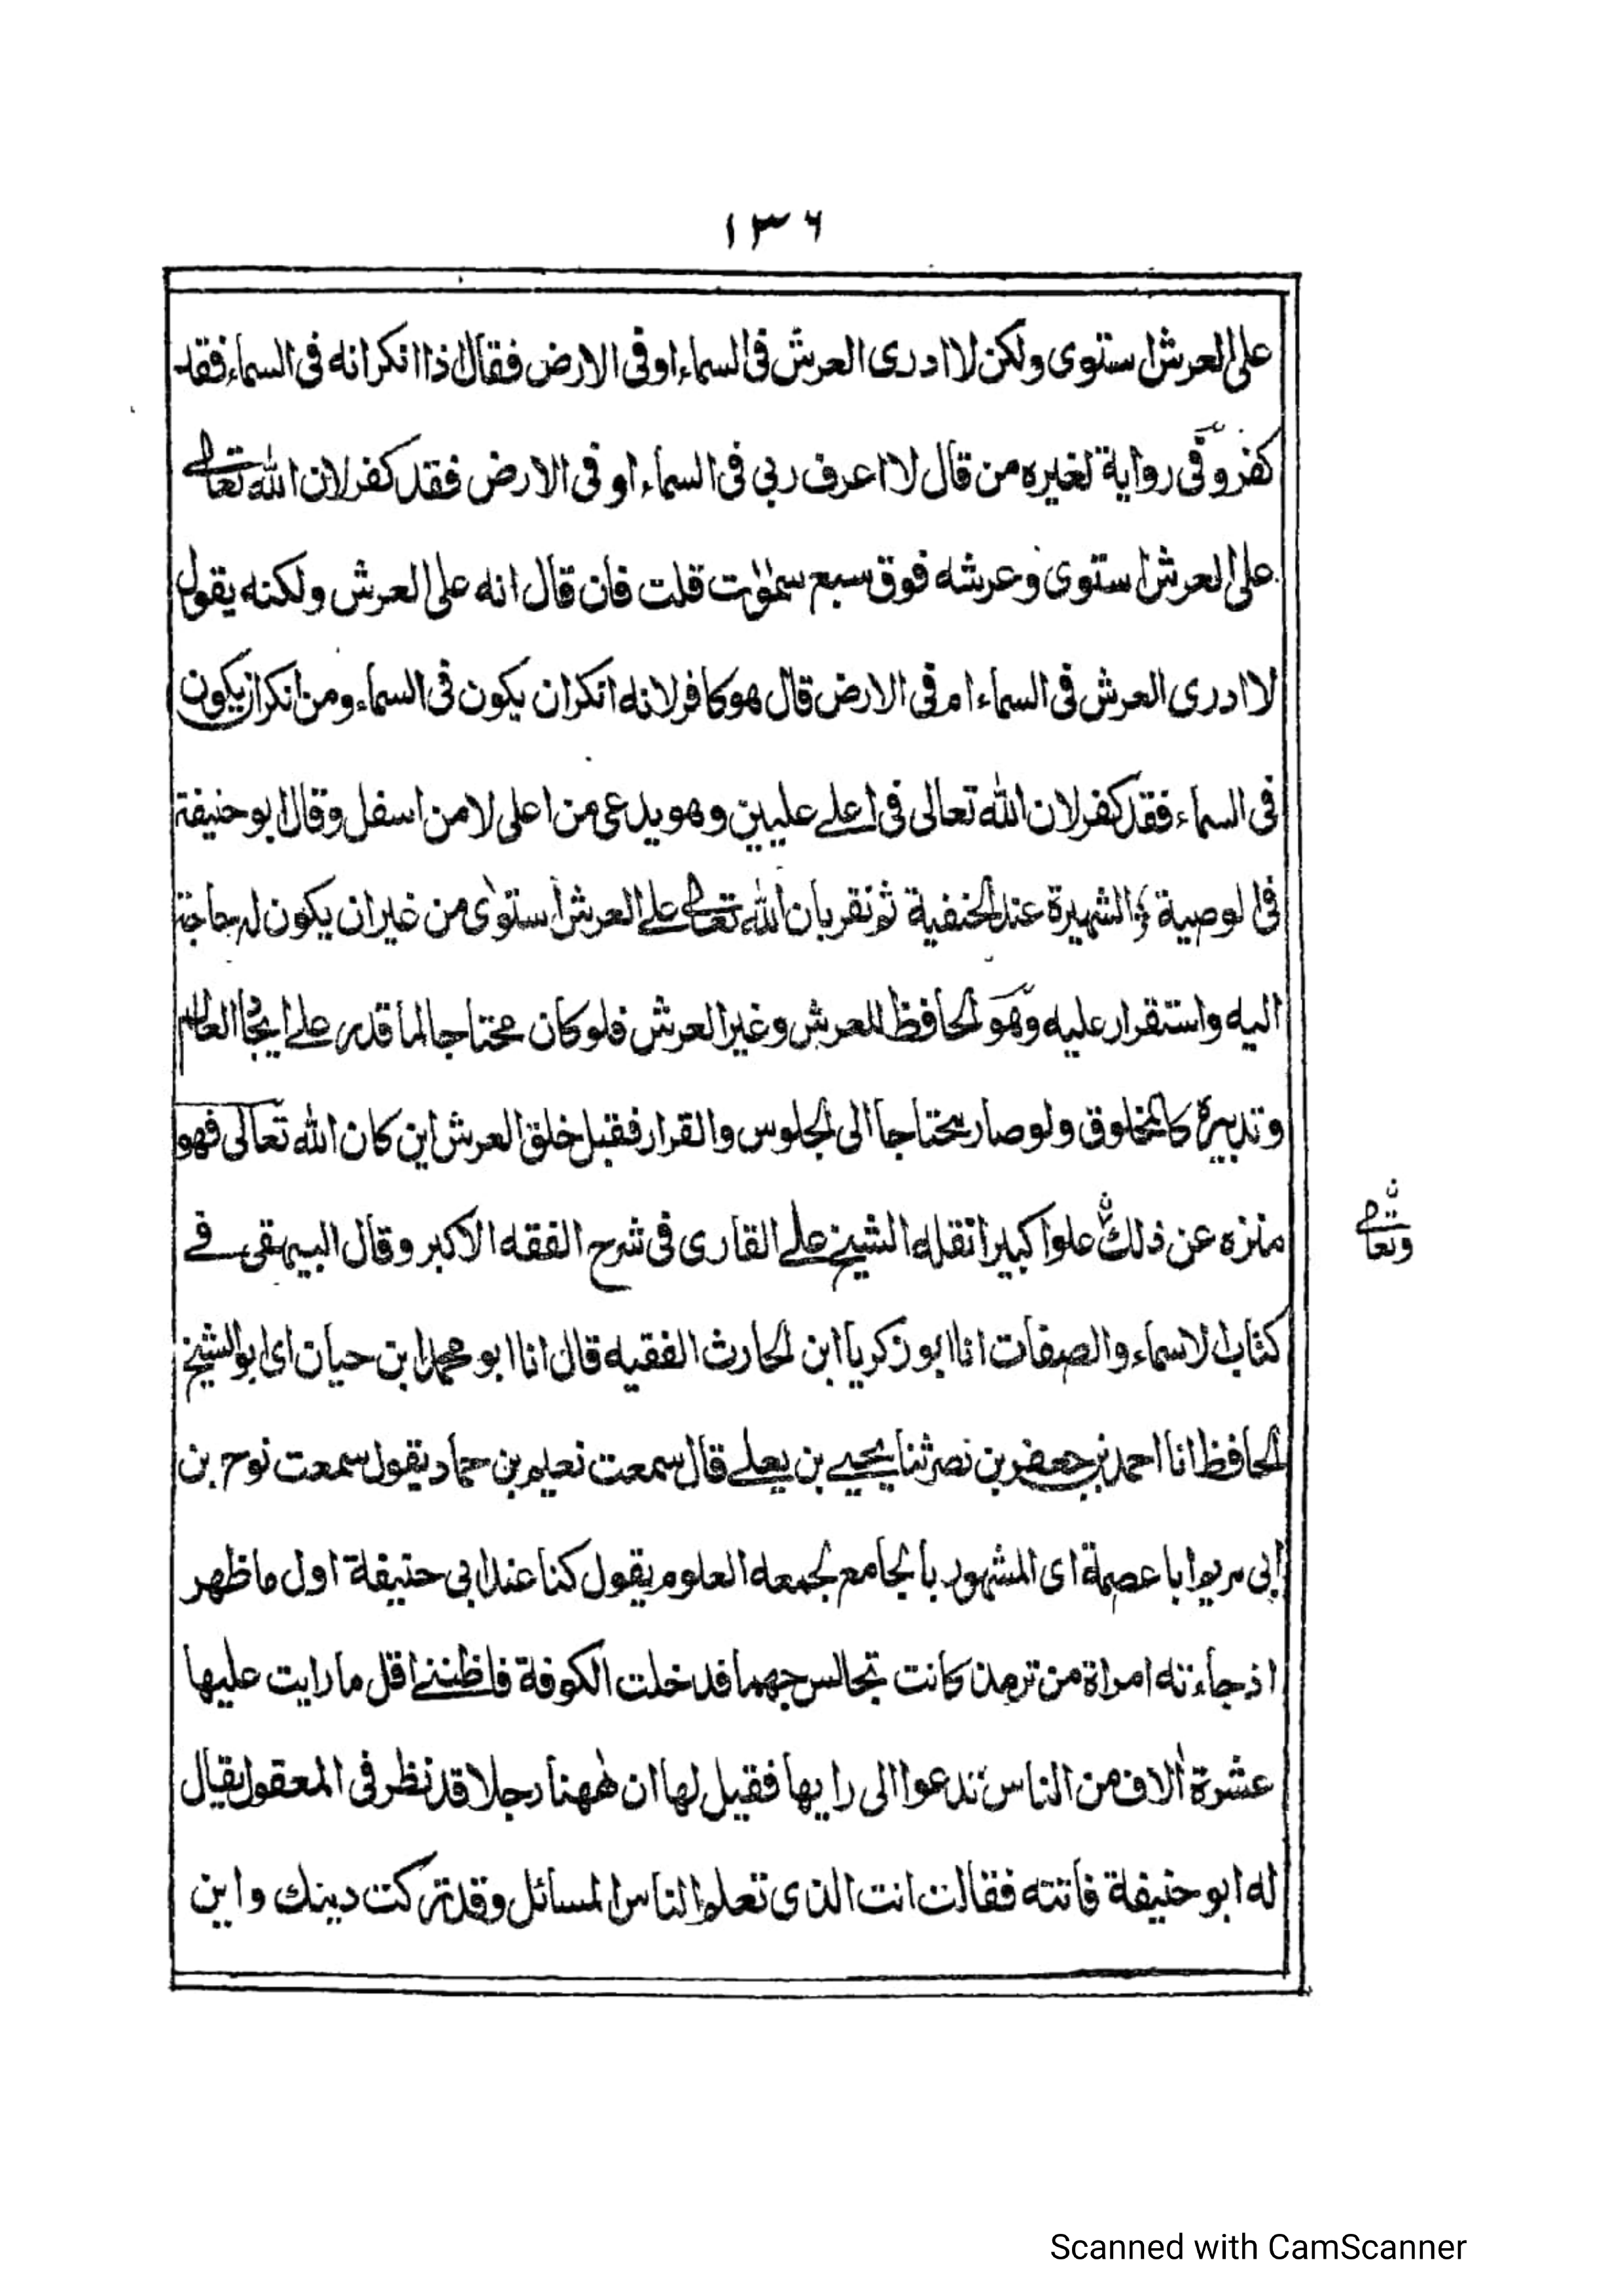 ١٣٦
على العرش استوى ولكن لا ادرى العرش فى السماء او فى الارض فقال اذا انكر انه فى السماء فقد
كفر وفى رواية لغيره من قال لا اعرف ربي فى السماء او فى الارض فقد كفر لان الله تعالى
على العرش استوى وعرشه فوق سبع سمٰوٰت قلت فان قال انه على العرش ولكنه يقول
لا ادرى العرش فى السماء ام فى الارض قال هو كافر لانه انكر ان يكون فى السماء ومن انكر ان يكون
فى السماء فقد كفر لان الله تعالى فى اعلے عليين وهو يدعى من اعلى لا من اسفل وقال ابو حنيفة
فى الوصية الشهيرة عند الحنفية ثم نقر بان الله تعالى علے العرش استوٰى من غير ان يكون له حاجة
اليه واستقرار عليه وهو الحافظ للعرش وغير العرش فلو كان محتاجا لما قدر علے ايجاد العالم
وتدبيره كالمخلوق ولو صار محتاجا الى الجلوس والقرار فقبل خلق العرش اين كان الله تعالى فهو
منزه عن ذلك علوا كبيرا نقله الشيخ علے القارى فى شرح الفقه الاكبر وقال البيهقى فے
وتعالى
كتاب الاسماء والصفات انا ابو زكريا ابن الحارث الفقيه قال انا ابو محمد ابن حيان اى ابو الشيخ
الحافظ انا احمد بن جعفر بن نصر ثنا يحيے بن يعلے قال سمعت نعيم بن حماد يقول سمعت نوح بن
ابى مريم ابا عصمة اى المشهور بالجامع لجمعه العلوم يقول كنا عند ابي حنيفة اول ما ظهر
اذ جاءته امراة من ترمذ كانت تجالس جهما فدخلت الكوفة فاظننے اقل ما رايت عليها
عشرة اٰلاف من الناس تدعوا الى رايها فقيل لها ان هٰهنا رجلا قد نظر فى المعقول يقال
له ابو حنيفة فأتته فقالت انت الذى تعلم الناس المسائل وقد تركت دينك واين
Scanned with CamScanner